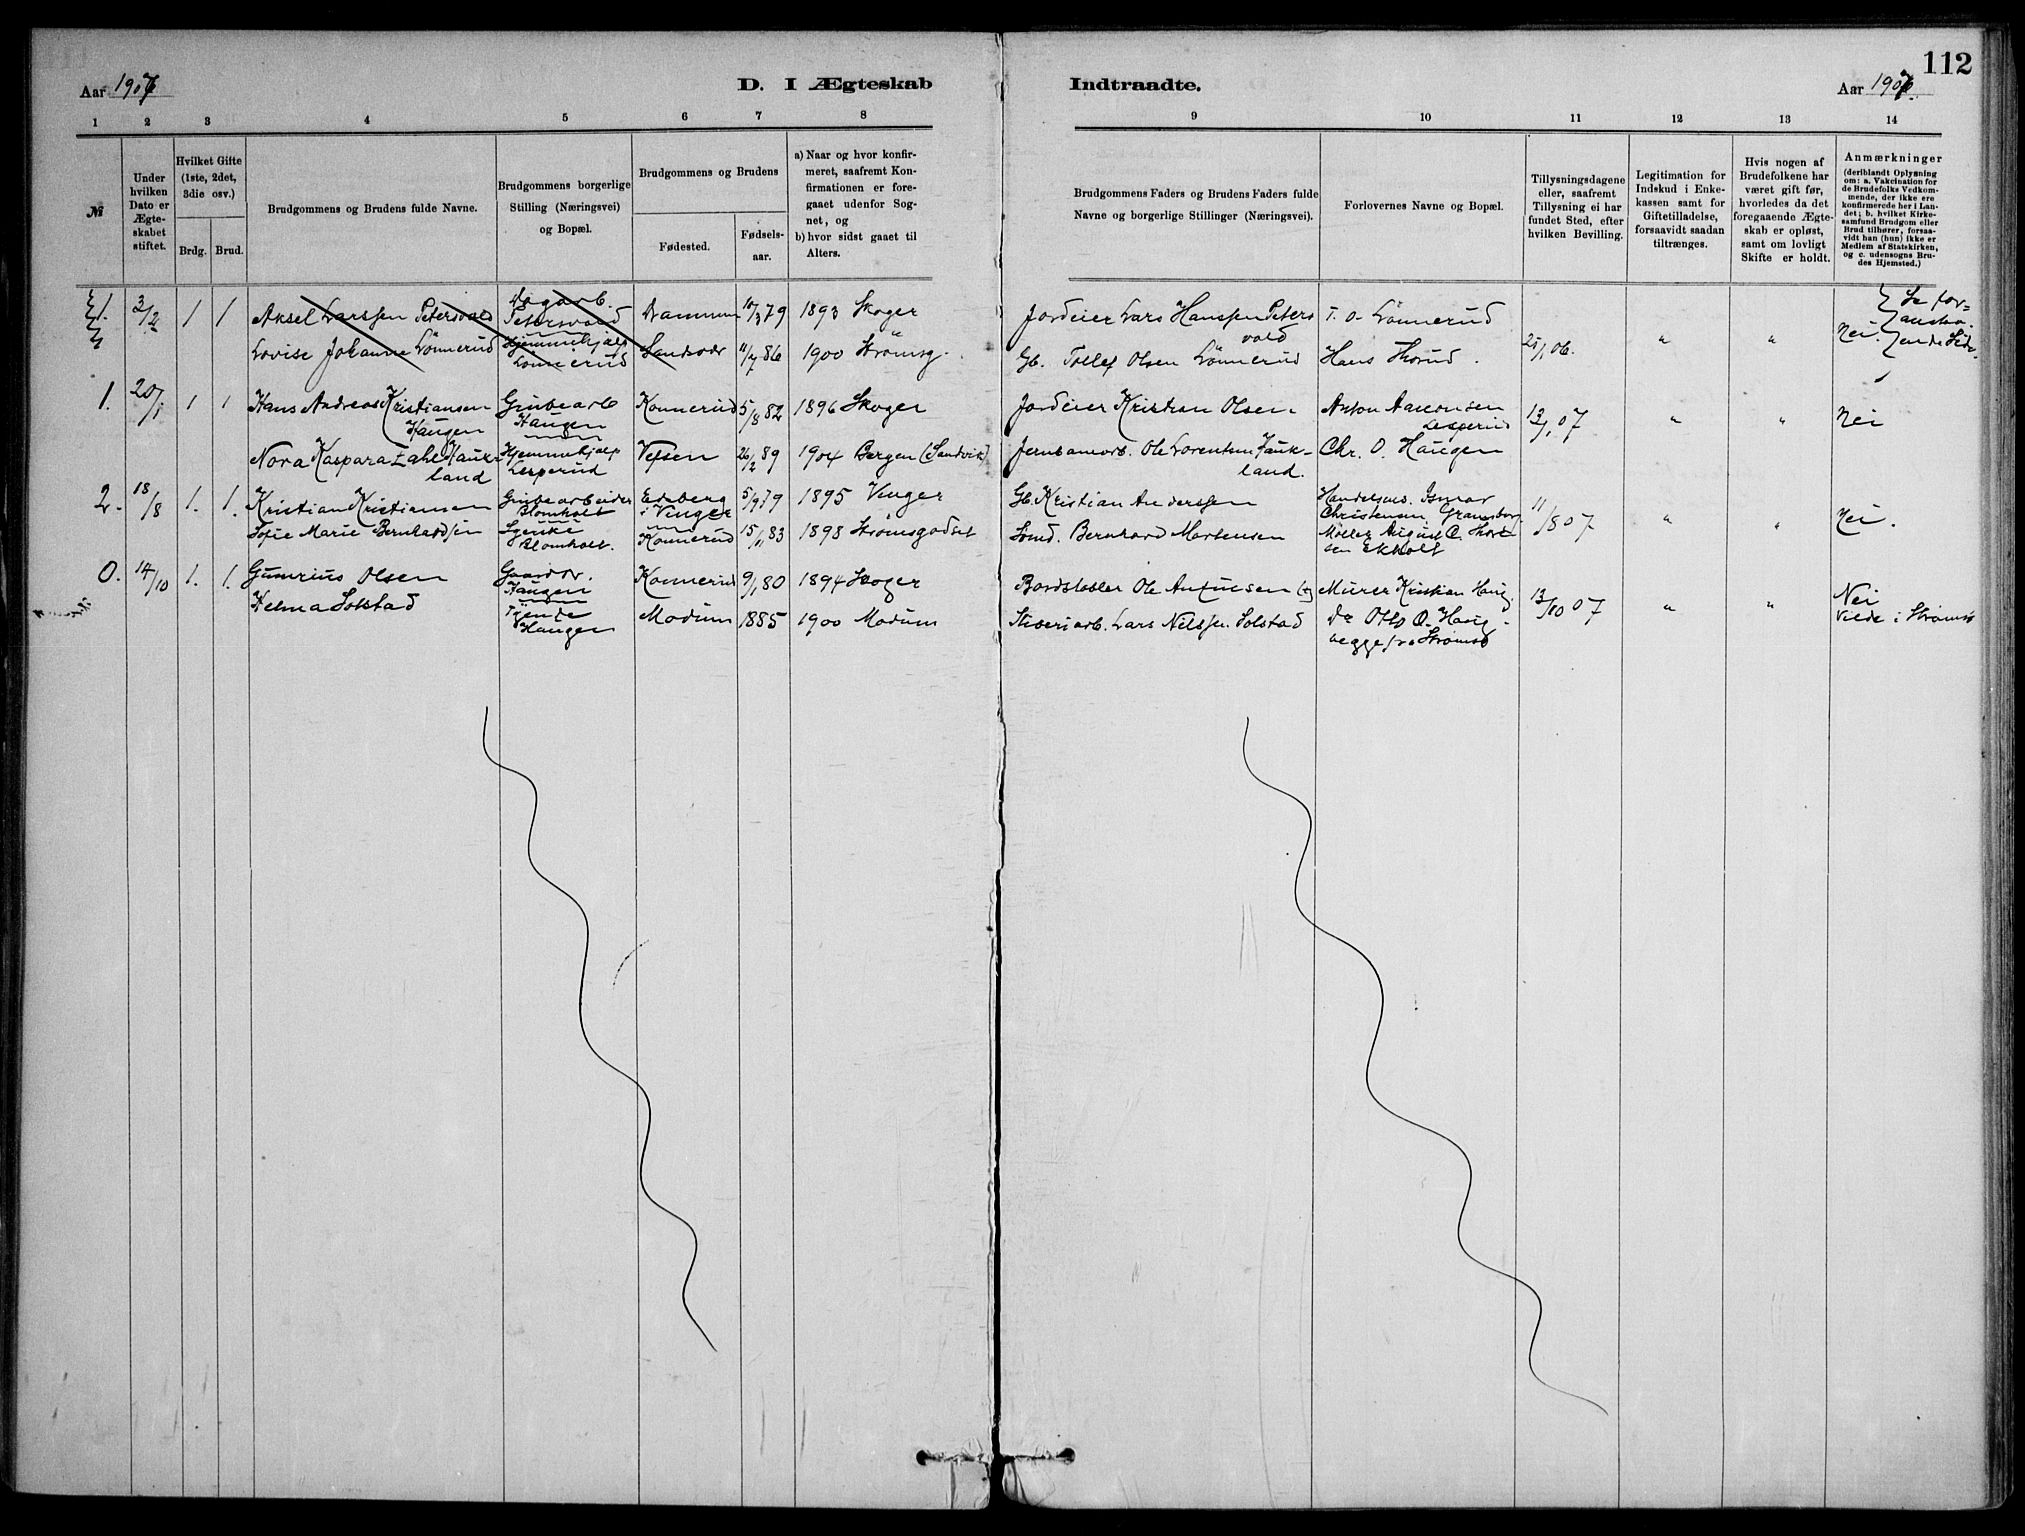 112
Aar 1907
D. I Ægteskab
Indtraadte.
Aar 1907.
1 2 3 4 5 6 7 8 9 10 11 12 13 14
№
Under hvilken Dato er Ægteskabet stiftet.
Hvilket Gifte (1ste, 2det, 3die osv.)
Brdg. Brud.
Brudgommens og Brudens fulde Navne.
Brudgommens borgerlige Stilling (Næringsvei) og Bopæl.
Brudgommens og Brudens
Fødested.
Fødselsaar.
a) Naar og hvor konfirmeret, saafremt Konfirmationen er foregaaet udenfor Sognet, og
b) hvor sidst gaaet til Alters.
Brudgommens Faders og Brudens Faders fulde Navne og borgerlige Stillinger (Næringsvei).
Forlovernes Navne og Bopæl.
Tillysningsdagene eller, saafremt Tillysning ei har fundet Sted, efter hvilken Bevilling.
Legitimation for Indskud i Enkekassen samt for Giftetilladelse, forsaavidt saadan tiltrænges.
Hvis nogen af Brudefolkene har været gift før, hvorledes da det foregaaende Ægteskab er opløst, samt om lovligt Skifte er holdt.
Anmærkninger
(deriblandt Oplysning om: a. Vakcination for de Brudefolks Vedkommende, der ikke ere konfirmerede her i Landet; b. hvilket Kirkesamfund Brudgom eller Brud tilhører, forsaavidt han (hun) ikke er Medlem af Statskirken, og c. udensogns Brudes Hjemsted.)
1. 3/2 1 1 Aksel Larssen Petersvold Dagarb. Petersvold Drammen 10/3 79 1893 Skoger Jordeier Lars Hanssen Petersvold T. O. Lönnerud
Lovise Johanne Lönnerud Hjemmehjælp Lönnerud Sandsvær 11/7 86 1900 Strømsg. Gb. Tollef Olsen Lönnerud Hans Thorud. 21/1 06. " " Nei. Se foranstaaende Side.
1. 20/1 1 1 Hans Andreas Kristiansen Haugen Grubearb Haugen Konnerud 5/8 82 1896 Skoger Jordeier Kristian Olsen Anton Aaronsen Lesperud 13/1 07 " " Nei
Nora Kaspara Zahl Haukland Hjemmehjælp Lesperud Vefsen 26/2 89 1904 Bergen (Sandvik) Jernbanearb. Ole Lorentsen Haukland Chr. O. Haugen
2. 18/8 1. 1. Kristian Kristiansen Grubearbeider Blomholt Edsberg i Vinger 5/9 79 1895 Vinger Gb. Kristian Anderssen Handelsms. Ismar Christensen Gransborg 11/8 07 " " Nei.
Sofie Marie Bernhardsen Syerske Blomholt. Konnerud 15/11 83 1898 Strømsgodset Smd. Bernhard Martensen Møller August O. Thorsen Ekholt
0. 14/10 1. 1. Gumrius Olsen Gaardbr. Haugen Konnerud 9/1 80 1894 Skoger Bordstabler Ole Antonsen (+) Murer Kristian Haug. 13/10 07 " " Nei
Helma Solstad Tjente Haugen Modum 1885 1900 Modum Sliperiarb. Lars Nilssen Solstad Do Otto O. Haug - begge fra Strømsø Viede i Strømsø